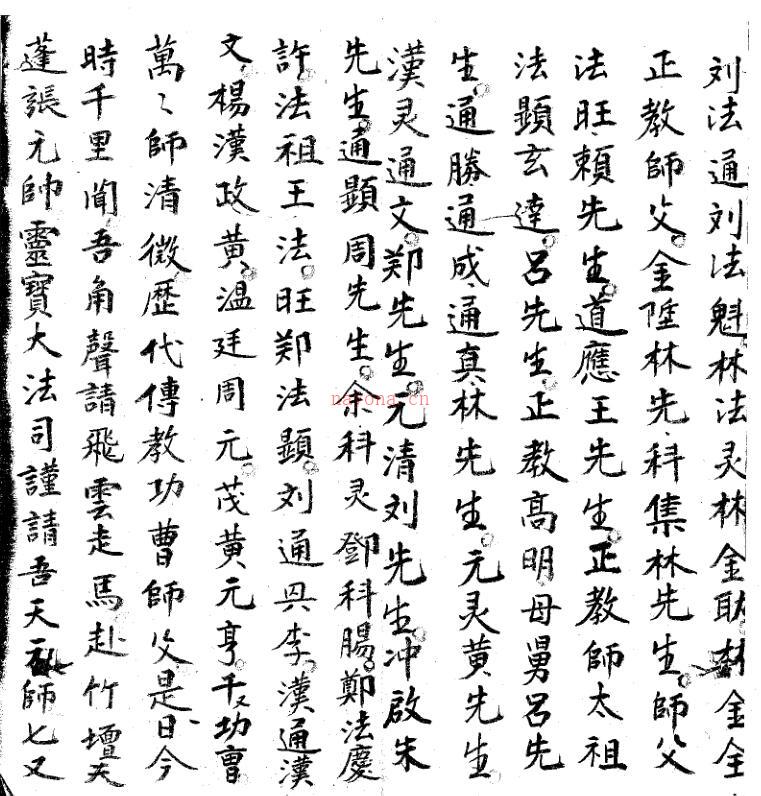 刘法通刘法魁林法灵林金耿林金全
正教師父金陞林先科集林先生師父
法旺賴先生道應王先生正教師太祖
法顕玄達呂先生正教高明母舅呂先
生通勝通成通真林先生元灵黄先生
漢灵通文郑先生元清刘先生冲啟朱
先生通顕周先生余科灵鄧科腸鄭法慶
許法祖王法旺郑法顕刘通興李漢通漢
文楊漢政黄温廷周元茂黄元亨千功曹
萬〻師清微歷代傳教功曹師父是日今
時千里聞吾角聲請飛雲走馬赴竹壇
蓬張元帥靈寶大法司謹請吾天師七又
nayona.cn